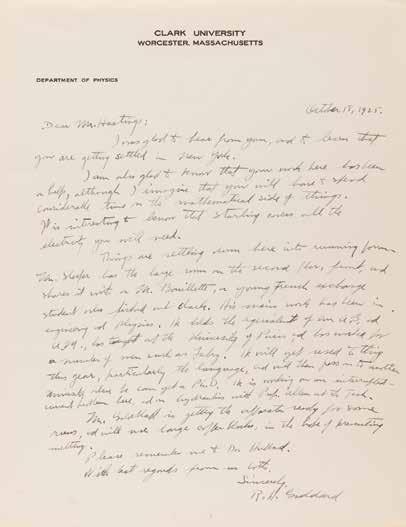 CLARK UNIVERSITY
WORCESTER, MASSACHUSETTS
DEPARTMENT OF PHYSICS
October 18, 1925.
Dear Mr. Hastings:
I was glad to hear from you, and to learn that
you are getting settled in New York.
I am also glad to know that your work here has been
a help, although I imagine that you will have to spend
considerable time on the mathematical side of things.
It is interesting to know that starting covers all the
electricity you will need.
Things are settling down here into running form.
Mr. has the large room on the second floor, front, and
shares it with a Mr. Bouillette, a young French exchange
student who at Clark. His main work has been in
engineering and physics. He holds the equivalent of an A.B. and
A.M., has taught at the University of and has worked for
a number of men such as Fabry. He will get used to things
this year, particularly the language, and will then pass on to another
university where he can get a Ph.D. He is working on an interrupted-
current problem here, and on hydraulics with Prof. Allen at the Tech.
Mr. is getting the apparatus ready for some
runs, and will use large copper blocks, in the hope of preventing
melting.
Please remember me to Dr. Hubbard.
With best regards from us both.
Sincerely,
R. H. Goddard